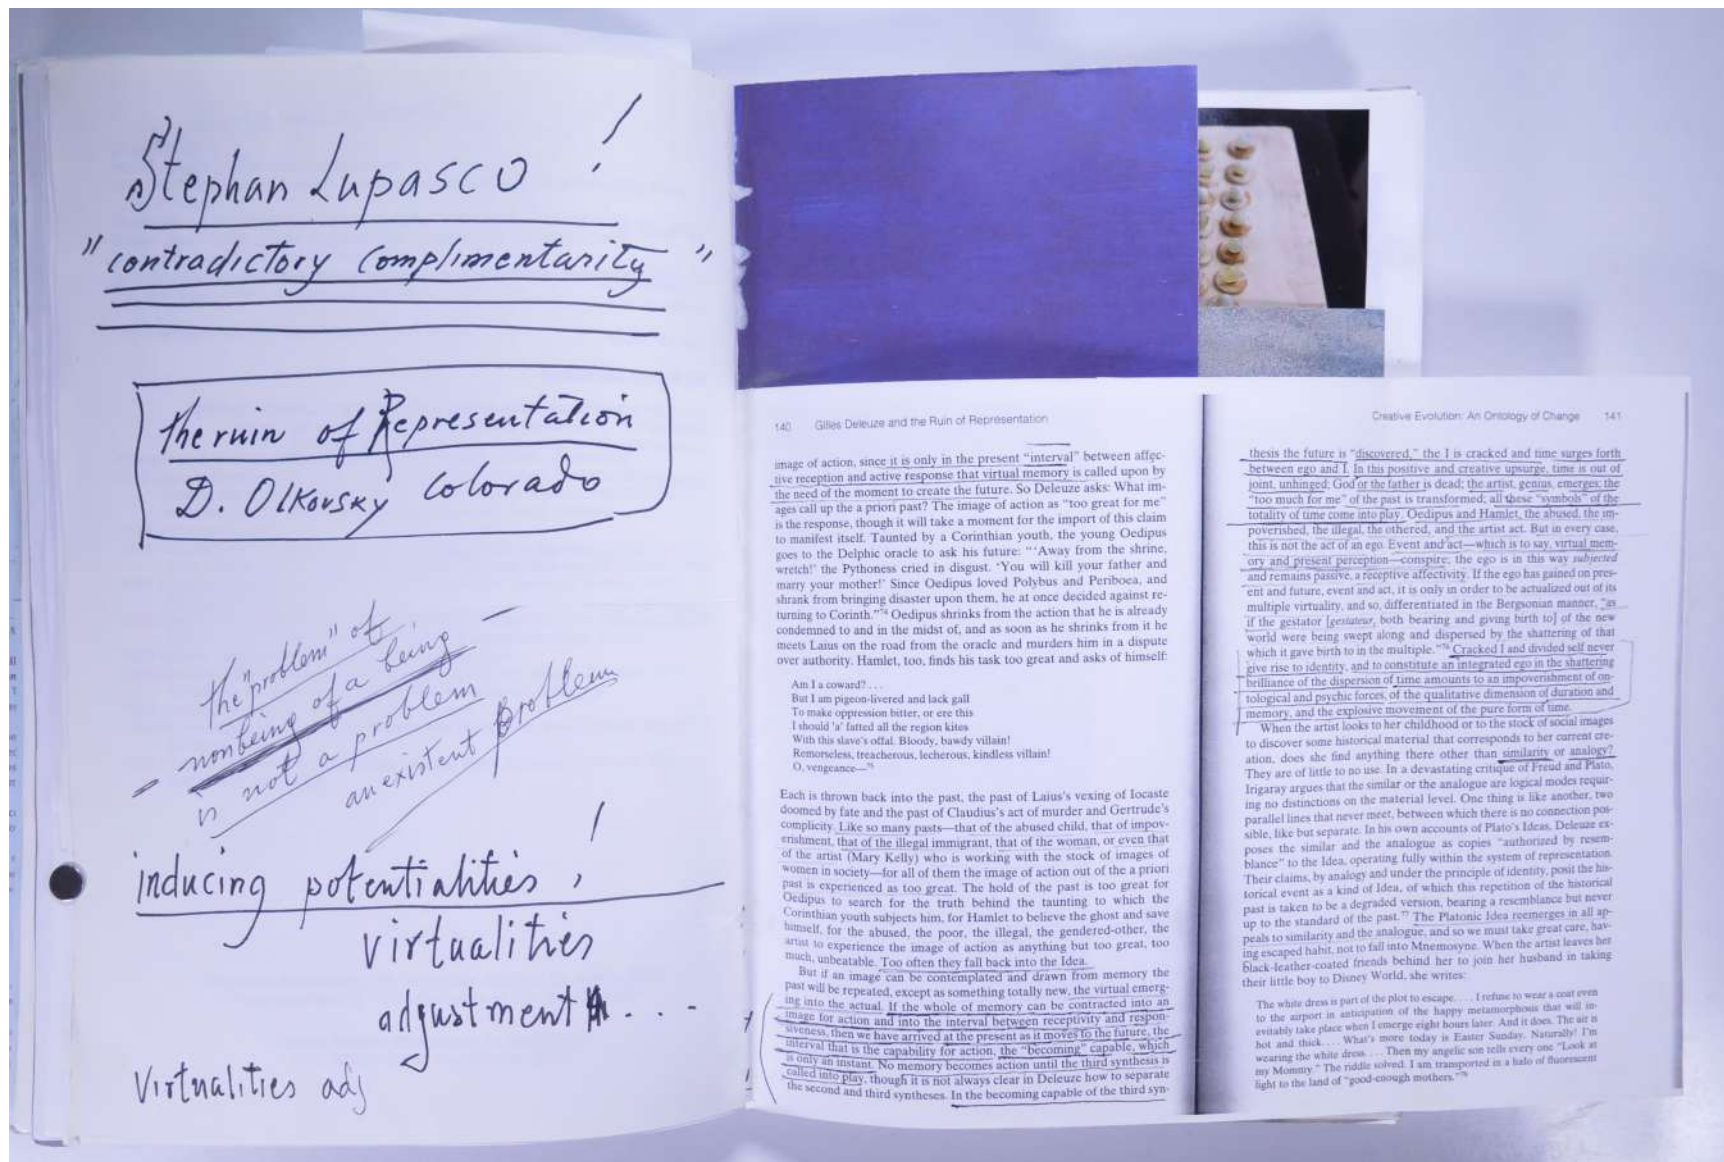 Stephan Lupasco !
"contradictory complimentarity"
the ruin of Representation
D. Olkovsky Colorado
the "problem" of
nonbeing of a being
is not a problem
an existent problem
inducing potentialities, !
virtualities
adjustment . . .
Virtualities adj
140 Gilles Deleuze and the Ruin of Representation
image of action, since it is only in the present "interval" between affec-
tive reception and active response that virtual memory is called upon by
the need of the moment to create the future. So Deleuze asks: What im-
ages call up the a priori past? The image of action as "too great for me"
is the response, though it will take a moment for the import of this claim
to manifest itself. Taunted by a Corinthian youth, the young Oedipus
goes to the Delphic oracle to ask his future: "'Away from the shrine,
wretch!' the Pythoness cried in disgust. 'You will kill your father and
marry your mother!' Since Oedipus loved Polybus and Periboea, and
shrank from bringing disaster upon them, he at once decided against re-
turning to Corinth."74 Oedipus shrinks from the action that he is already
condemned to and in the midst of, and as soon as he shrinks from it he
meets Laius on the road from the oracle and murders him in a dispute
over authority. Hamlet, too, finds his task too great and asks of himself:
Am I a coward? . . .
But I am pigeon-livered and lack gall
To make oppression bitter, or ere this
I should 'a' fatted all the region kites
With this slave's offal. Bloody, bawdy villain!
Remorseless, treacherous, lecherous, kindless villain!
O, vengeance—75
Each is thrown back into the past, the past of Laius's vexing of Iocaste
doomed by fate and the past of Claudius's act of murder and Gertrude's
complicity. Like so many pasts—that of the abused child, that of impov-
erishment, that of the illegal immigrant, that of the woman, or even that
of the artist (Mary Kelly) who is working with the stock of images of
women in society—for all of them the image of action out of the a priori
past is experienced as too great. The hold of the past is too great for
Oedipus to search for the truth behind the taunting to which the
Corinthian youth subjects him, for Hamlet to believe the ghost and save
himself, for the abused, the poor, the illegal, the gendered-other, the
artist to experience the image of action as anything but too great, too
much, unbeatable. Too often they fall back into the Idea.
But if an image can be contemplated and drawn from memory the
past will be repeated, except as something totally new, the virtual emerg-
ing into the actual. If the whole of memory can be contracted into an
image for action and into the interval between receptivity and respon-
siveness, then we have arrived at the present as it moves to the future, the
interval that is the capability for action, the "becoming" capable, which
is only an instant. No memory becomes action until the third synthesis is
called into play, though it is not always clear in Deleuze how to separate
the second and third syntheses. In the becoming capable of the third syn-
Creative Evolution: An Ontology of Change 141
thesis the future is "discovered," the I is cracked and time surges forth
between ego and I. In this positive and creative upsurge, time is out of
joint, unhinged; God or the father is dead; the artist, genius, emerges; the
"too much for me" of the past is transformed; all these "symbols" of the
totality of time come into play. Oedipus and Hamlet, the abused, the im-
poverished, the illegal, the othered, and the artist act. But in every case,
this is not the act of an ego. Event and act—which is to say, virtual mem-
ory and present perception—conspire; the ego is in this way subjected
and remains passive, a receptive affectivity. If the ego has gained on pres-
ent and future, event and act, it is only in order to be actualized out of its
multiple virtuality, and so, differentiated in the Bergsonian manner, "as
if the gestator [gestateur, both bearing and giving birth to] of the new
world were being swept along and dispersed by the shattering of that
which it gave birth to in the multiple."76 Cracked I and divided self never
give rise to identity, and to constitute an integrated ego in the shattering
brilliance of the dispersion of time amounts to an impoverishment of on-
tological and psychic forces, of the qualitative dimension of duration and
memory, and the explosive movement of the pure form of time.
When the artist looks to her childhood or to the stock of social images
to discover some historical material that corresponds to her current cre-
ation, does she find anything there other than similarity or analogy?
They are of little to no use. In a devastating critique of Freud and Plato,
Irigaray argues that the similar or the analogue are logical modes requir-
ing no distinctions on the material level. One thing is like another, two
parallel lines that never meet, between which there is no connection pos-
sible, like but separate. In his own accounts of Plato's Ideas, Deleuze ex-
poses the similar and the analogue as copies "authorized by resem-
blance" to the Idea, operating fully within the system of representation.
Their claims, by analogy and under the principle of identity, posit the his-
torical event as a kind of Idea, of which this repetition of the historical
past is taken to be a degraded version, bearing a resemblance but never
up to the standard of the past.77 The Platonic Idea reemerges in all ap-
peals to similarity and the analogue, and so we must take great care, hav-
ing escaped habit, not to fall into Mnemosyne. When the artist leaves her
black-leather-coated friends behind her to join her husband in taking
their little boy to Disney World, she writes:
The white dress is part of the plot to escape. . . . I refuse to wear a coat even
to the airport in anticipation of the happy metamorphosis that will in-
evitably take place when I emerge eight hours later. And it does. The air is
hot and thick. . . . What's more today is Easter Sunday. Naturally! I'm
wearing the white dress. . . . Then my angelic son tells every one "Look at
my Mommy." The riddle solved. I am transported in a halo of fluorescent
light to the land of "good-enough mothers."78